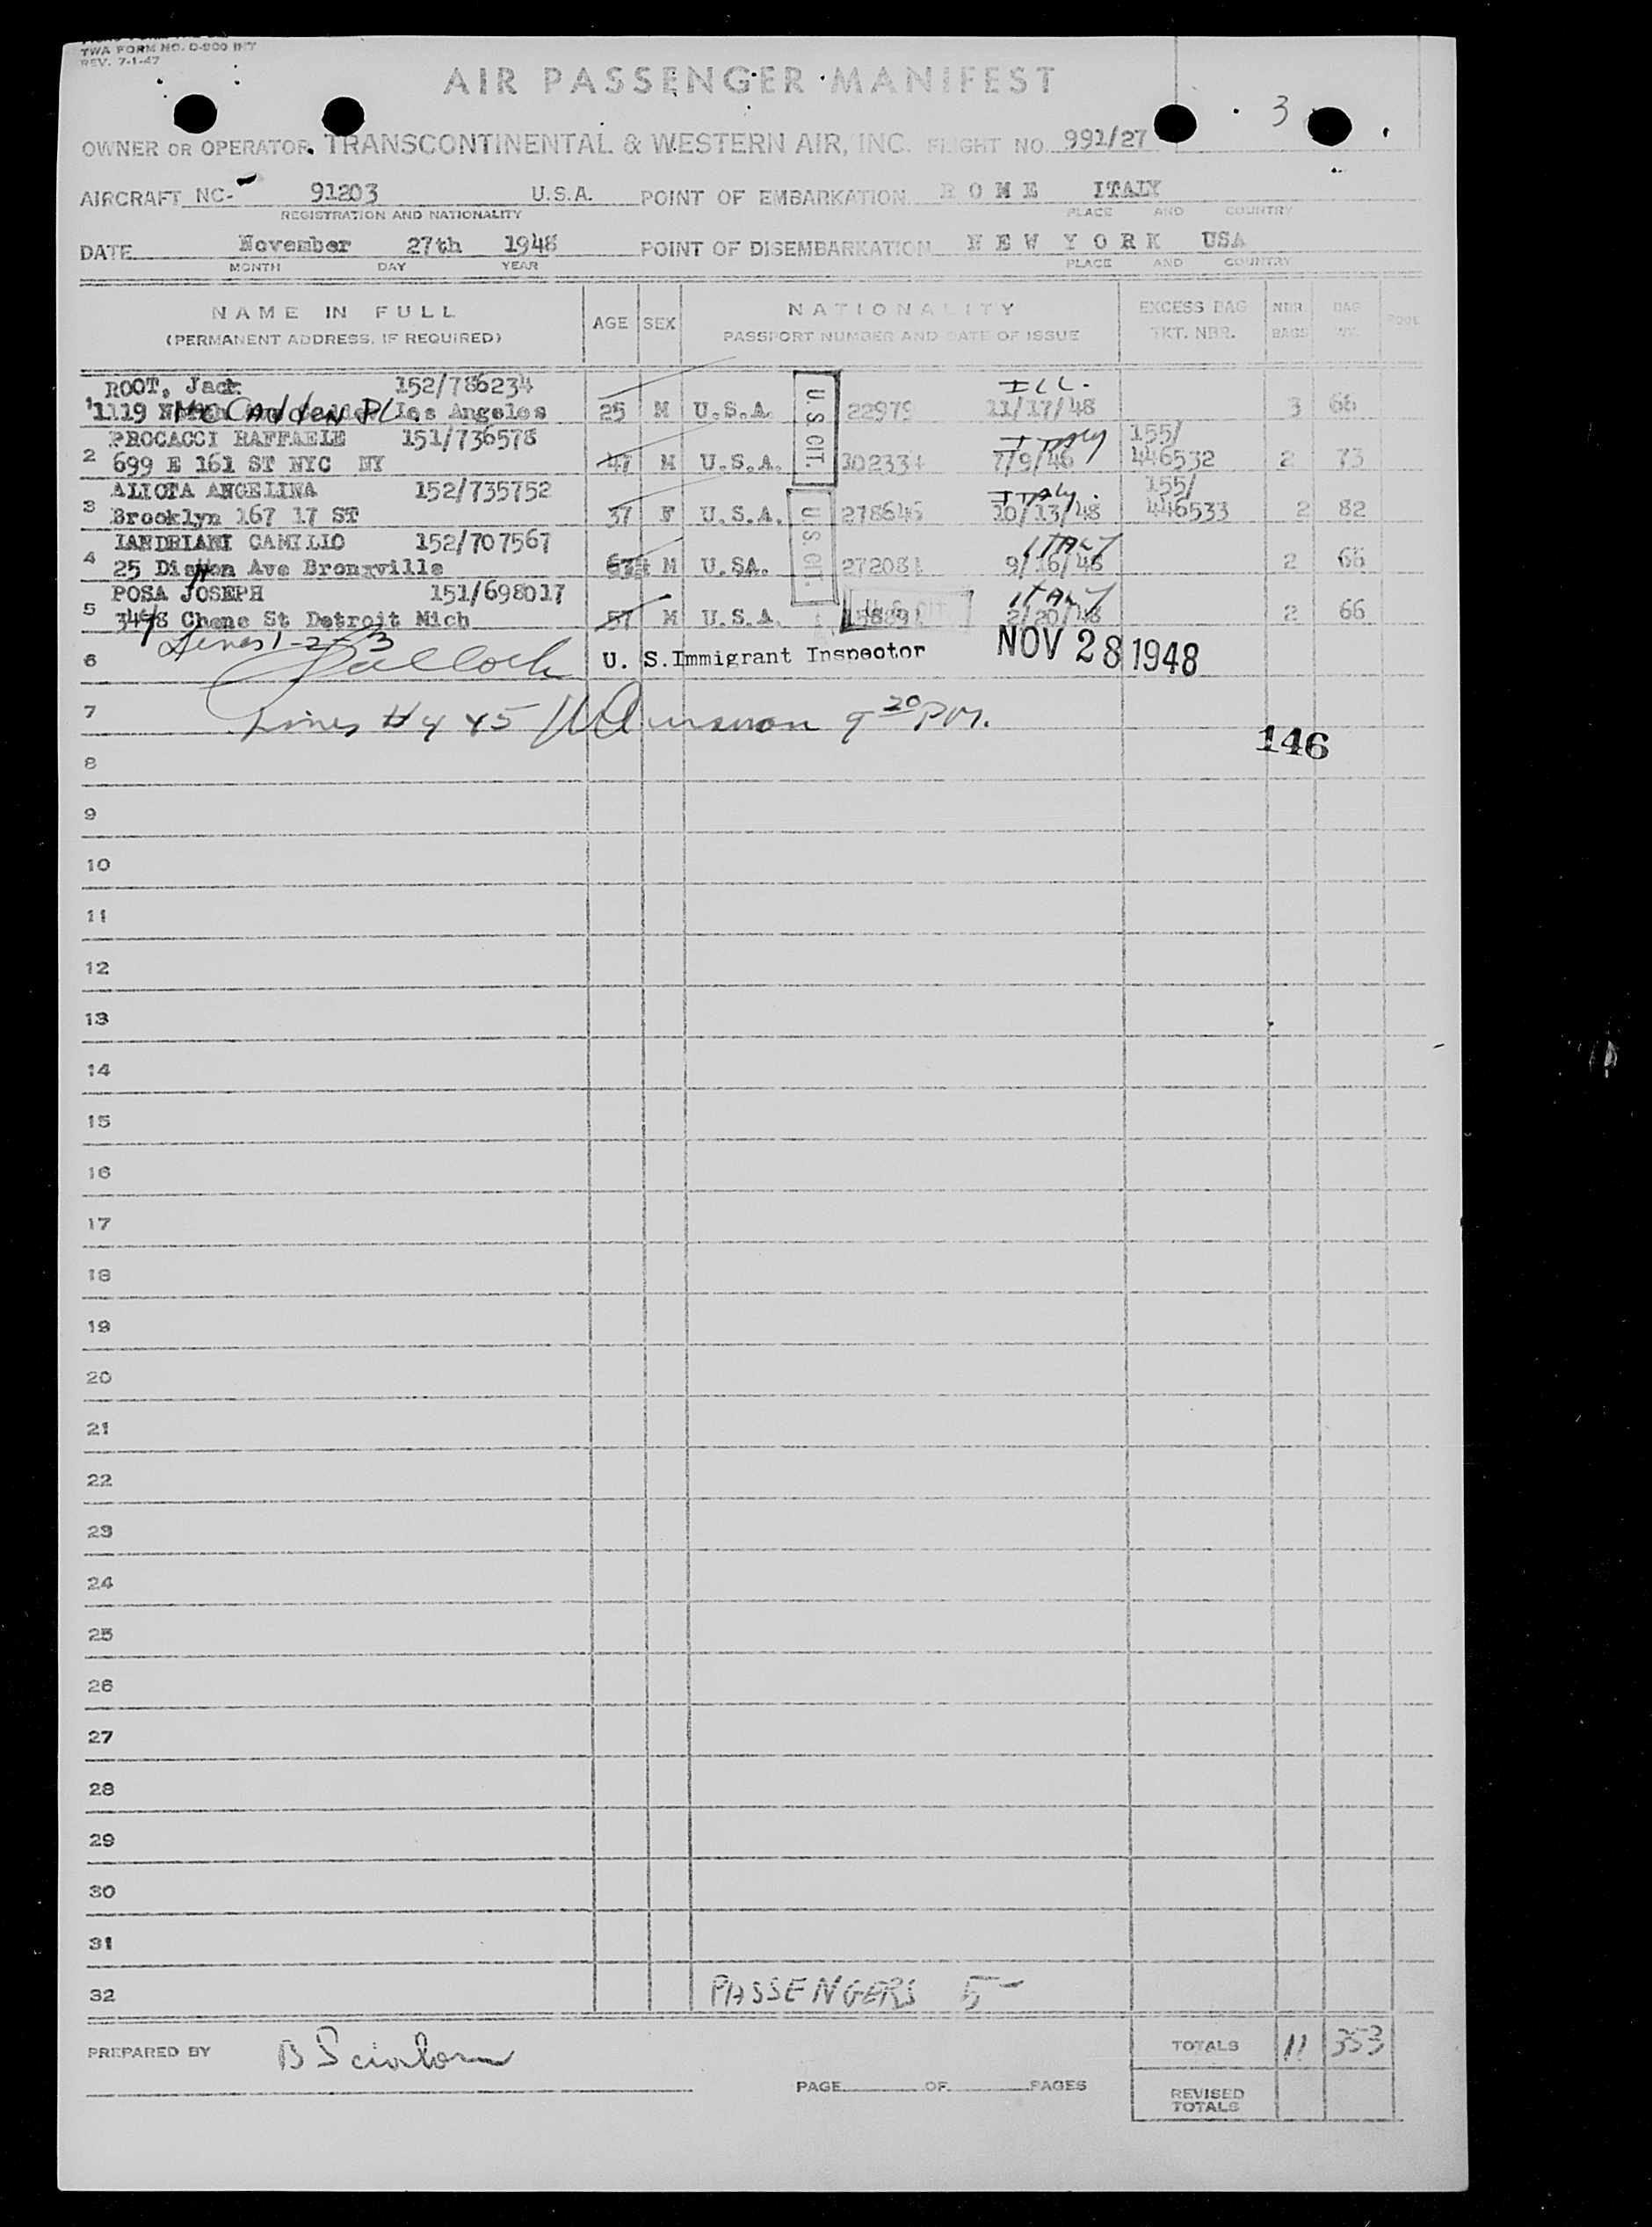 TWA FORM NO. O-900 INT
REV. 7-1-47
AIR PASSENGER MANIFEST
3
OWNER OR OPERATOR. TRANSCONTINENTAL & WESTERN AIR, INC. FLIGHT NO. 991/27
AIRCRAFT NC- 91203 U.S.A. POINT OF EMBARKATION R O M E ITALY
REGISTRATION AND NATIONALITY PLACE AND COUNTRY
DATE November 27th 1948 POINT OF DISEMBARKATION N E W Y O R K USA
MONTH DAY YEAR PLACE AND COUNTRY
NAME IN FULL AGE SEX NATIONALITY EXCESS BAG NBR BAG POOL
(PERMANENT ADDRESS, IF REQUIRED) PASSPORT NUMBER AND DATE OF ISSUE TKT. NBR. BAGS WT.
ROOT, Jack 152/786234 ILL.
1 1119 McCadden PL Los Angeles 25 M U.S.A. 22979 11/17/48 3 66
PROCACCI RAFFAELE 151/736578 ITALY 155/
2 699 E 161 ST NYC NY 47 M U.S.A. 102334 7/9/46 446532 2 73
U.S. CIT.
ALIOTA ANGELINA 152/735752 ITALY. 155/
3 Brooklyn 167 17 ST 37 F U.S.A. 278645 10/13/48 446533 2 82
IANDRIANI CAMILLO 152/707567 ITALY
4 25 Ave Bronxville M U.SA. 272081 9/16/46 2 66
U.S. CIT.
POSA JOSEPH 151/698017 ITALY
5 Chene St Detroit Mich 57 M U.S.A. 2/20/48 2 66
U.S. CIT
Lines 1-2-3
6 U. S. Immigrant Inspector NOV 28 1948
7 Lines # 4 & 5 9 20 PM.
146
8
9
10
11
12
13
14
15
16
17
18
19
20
21
22
23
24
25
26
27
28
29
30
31
32 PASSENGERS 5-
PREPARED BY TOTALS 11 353
PAGE OF PAGES
REVISED
TOTALS